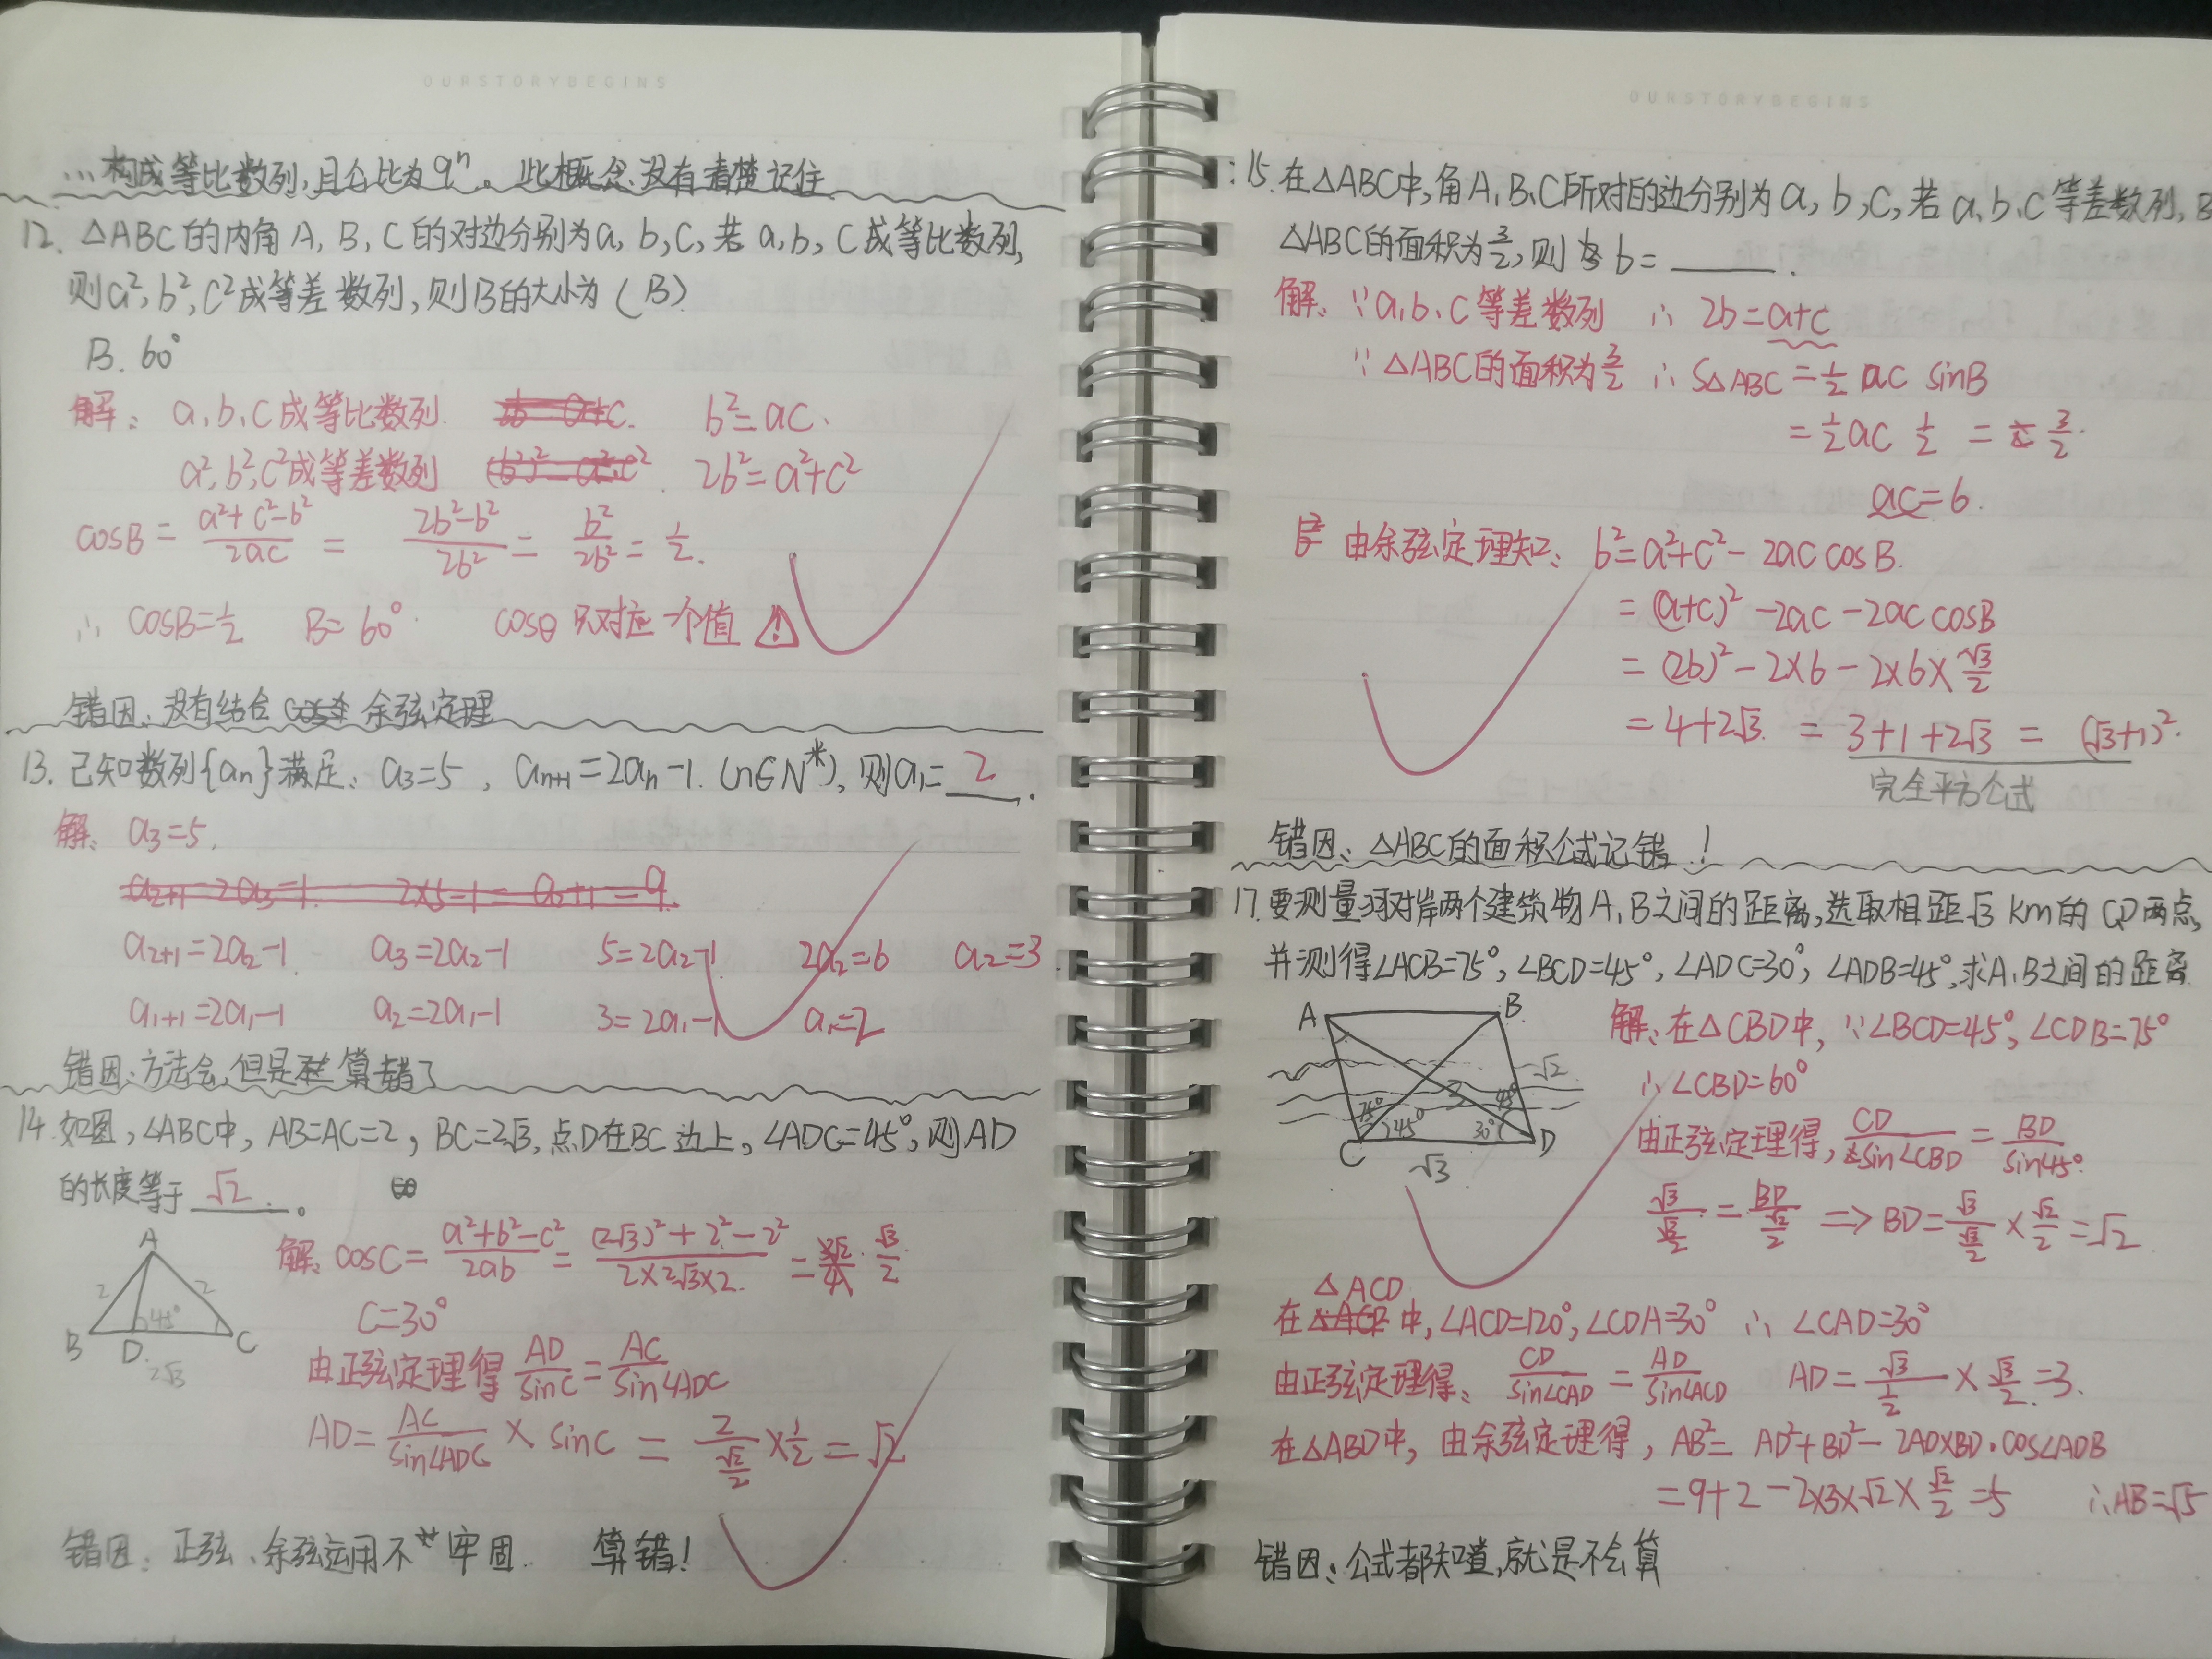 OURSTORYBEGINS
∴构成等比数列,且公比为qⁿ。此概念没有清楚记住
12. △ABC的内角A,B,C的对边分别为a,b,c,若a,b,c成等比数列,
则a²,b²,c²成等差数列,则B的大小为(B)
B. 60°
解: a,b,c成等比数列. b²=ac.
a²,b²,c²成等差数列 2b²=a²+c²
cosB = (a²+c²-b²)/2ac = (2b²-b²)/2b² = b²/2b² = 1/2.
∴ cosB=1/2 B=60°. cosθ只对应一个值 ⚠
错因:没有结合余弦定理
13. 已知数列{aₙ}满足: a₃=5, aₙ₊₁=2aₙ-1.(n∈N*),则a₁=2.
解: a₃=5.
a₂₊₁=2a₂-1 a₃=2a₂-1 5=2a₂-1 2a₂=6 a₂=3
a₁₊₁=2a₁-1 a₂=2a₁-1 3=2a₁-1 a₁=2
错因:方法会,但是算错了
14. 如图,∠ABC中, AB=AC=2, BC=2√3,点D在BC边上,∠ADC=45°,则AD
的长度等于√2。
A
2 2
45°
B D. C
2√3
解: cosC= (a²+b²-c²)/2ab = ((2√3)²+2²-2²)/(2×2√3×2) = √3/2.
C=30°
由正弦定理得 AD/sinC = AC/sin∠ADC
AD= AC/sin∠ADC × sinC = 2/(√2/2) × 1/2 = √2
错因: 正弦、余弦运用不牢固. 算错!
OURSTORYBEGINS
15. 在△ABC中,角A,B,C所对的边分别为a,b,c,若a,b,c等差数列,B
△ABC的面积为3/2,则b=____.
解: ∵a,b,c等差数列 ∴ 2b=a+c
∵△ABC的面积为3/2 ∴ S△ABC=1/2 ac sinB
=1/2 ac 1/2 = 3/2.
ac=6.
由余弦定理知: b²=a²+c²-2ac cosB.
=(a+c)²-2ac-2ac cosB
=(2b)²-2×6-2×6×√3/2
=4+2√3. = 3+1+2√3 = (√3+1)².
完全平方公式
错因: △ABC的面积公式记错!
17. 要测量河对岸两个建筑物A,B之间的距离,选取相距√3 km的C,D两点,
并测得∠ACB=75°,∠BCD=45°,∠ADC=30°,∠ADB=45°,求A,B之间的距离.
A B
√2
3
75° 45° 30° 45°
C D
√3
解:在△CBD中,∵∠BCD=45°,∠CDB=75°
∴∠CBD=60°
由正弦定理得, CD/sin∠CBD = BD/sin45°.
√3/(√3/2) = BD/(√2/2) ⇒ BD= √3/(√3/2) × √2/2 =√2
△ACD
在中,∠ACD=120°,∠CDA=30° ∴ ∠CAD=30°
由正弦定理得: CD/sin∠CAD = AD/sin∠ACD AD= √3/(1/2) × √3/2 =3.
在△ABD中,由余弦定理得, AB²= AD²+BD²-2AD×BD·cos∠ADB
=9+2-2×3×√2×√2/2 =5 ∴AB=√5
错因:公式都知道,就是不会算